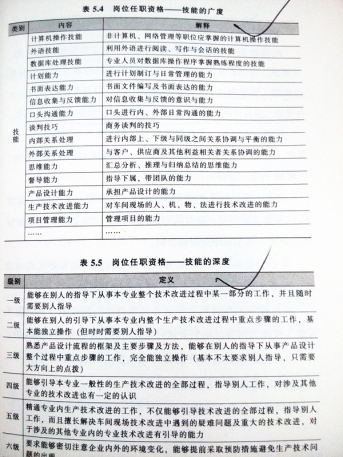 表 5.4 岗位任职资格——技能的广度
类别 内容 解释
技能
计算机操作技能 非计算机、网络管理等职位应掌握的计算机操作技能
外语技能 利用外语进行阅读、写作与会话的技能
数据库处理技能 专业人员对数据库操作程序掌握熟练程度的技能
计划能力 进行计划制订与日常管理的能力
书面表达能力 书面文件编写及书面表达的能力
信息收集与反馈能力 对信息收集与反馈的意识与能力
口头沟通能力 口头进行内、外部日常沟通的能力
谈判技巧 商务谈判的技巧
内部关系处理 进行内部上、下级与同级之间关系协调与平衡的能力
外部关系处理 与客户，供应商及其他利益相关者关系协调的能力
思维能力 汇总分析、推理与归纳总结的思维能力
督导能力 指导下属、带团队的能力
产品设计能力 承担产品设计的能力
生产技术改进能力 对车间现场的人、机、物、法进行技术改进的能力
项目管理能力 管理项目的能力
……  ……
表 5.5 岗位任职资格——技能的深度
级别 定义
一级 能够在别人的指导下从事本专业整个技术改进过程中某一部分的工作，并且随时
需要别人指导
二级 能够在别人的引导下从事本专业内整个生产技术改进过程中重点步骤的工作，基
本能独立操作（但时时需要别人指导）
三级 熟悉产品设计流程的框架及主要步骤及方法，能够在别人的指导下从事产品设计
整个过程中重点步骤的工作，完全能独立操作（基本不太要求别人指导，只需要
大方向上的点拨）
四级 能够引导本专业一般性的生产技术改进的全部过程，指导别人工作，对涉及其他
专业的技术改进也有一定的认识
五级 精通专业内生产技术改进的工作，不仅能够引导技术改进的全部过程，指导别人
工作，而且擅长解决车间现场技术改进中遇到的疑难问题及重大的技术改进，对
于涉及的其他专业内的专业技术改进有引导的能力
六级 要求能够密切注意企业内外的环境变化，能够提前采取预防措施避免生产技术问
题的出现